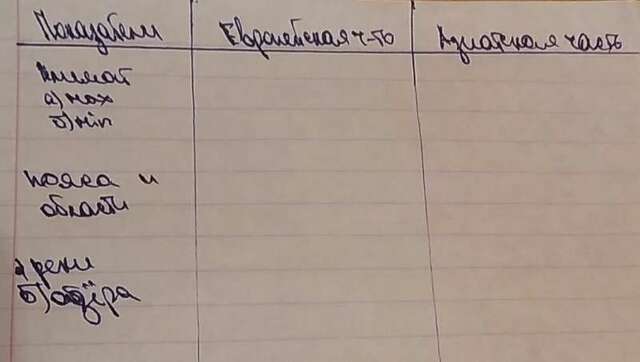 Показатели Европейская ч-ть Азиатская часть
Климат
а) max
б) min
пояса и
области
а) реки
б) озёра